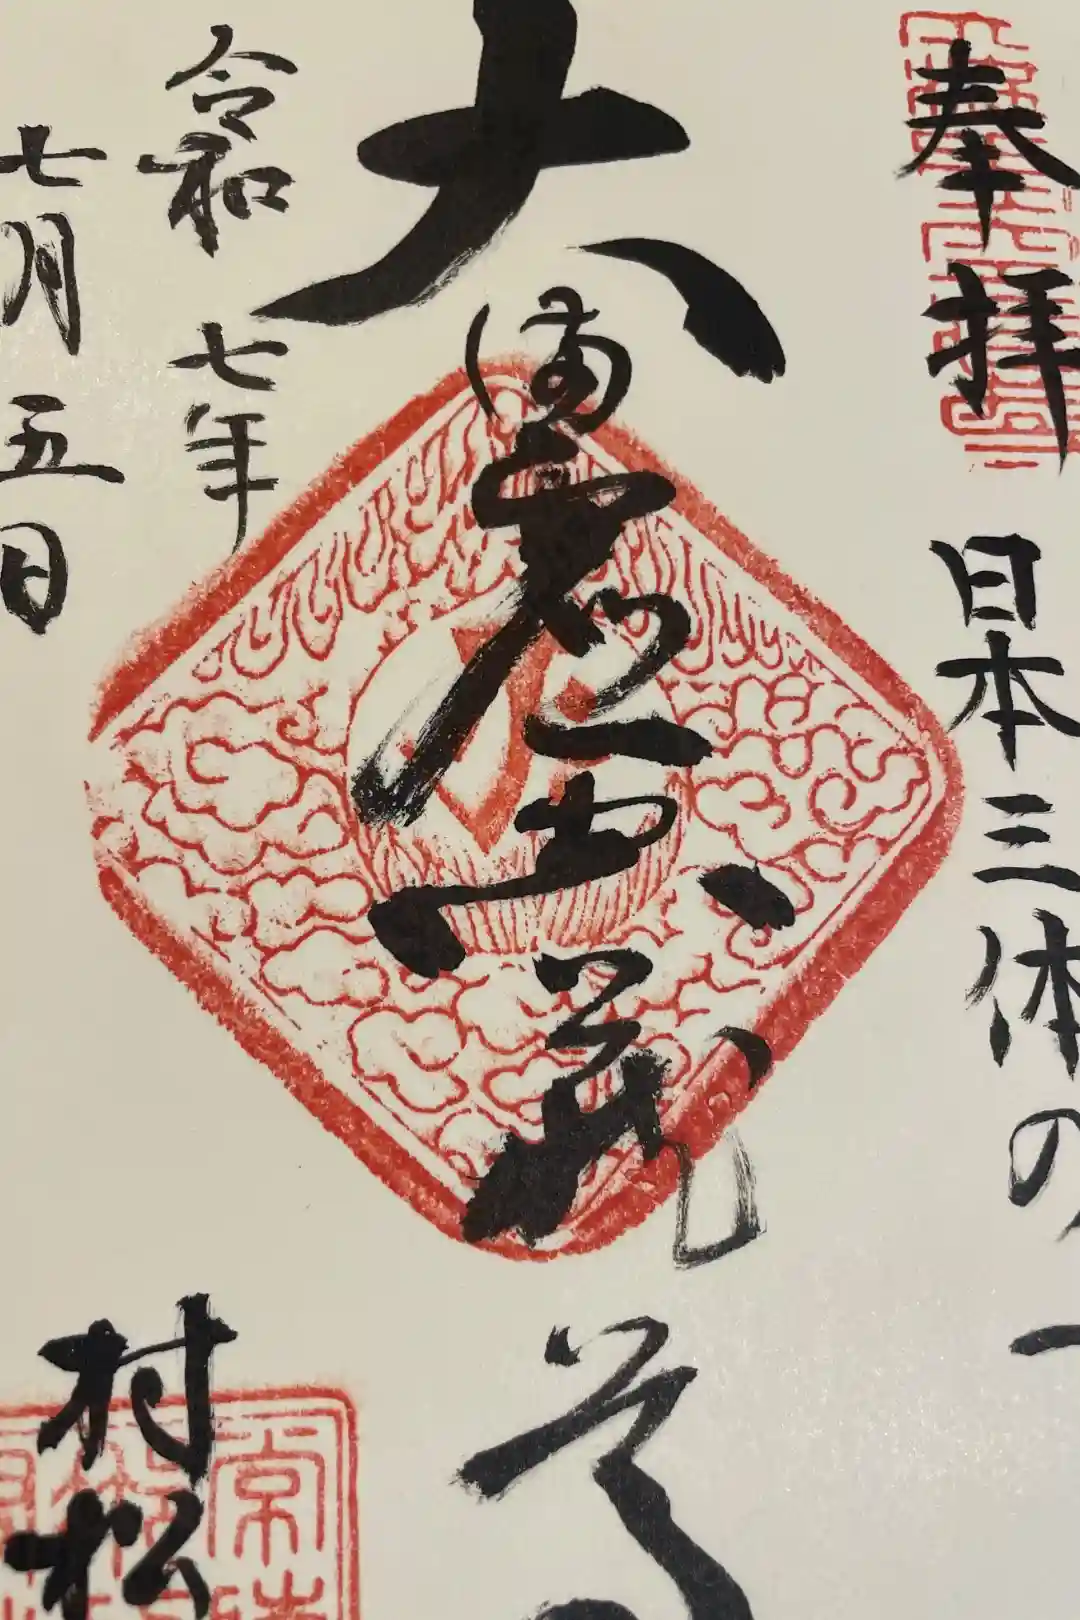 奉拝 日本三体の一
大満虚空蔵尊
令和 七年
七月五日
村松